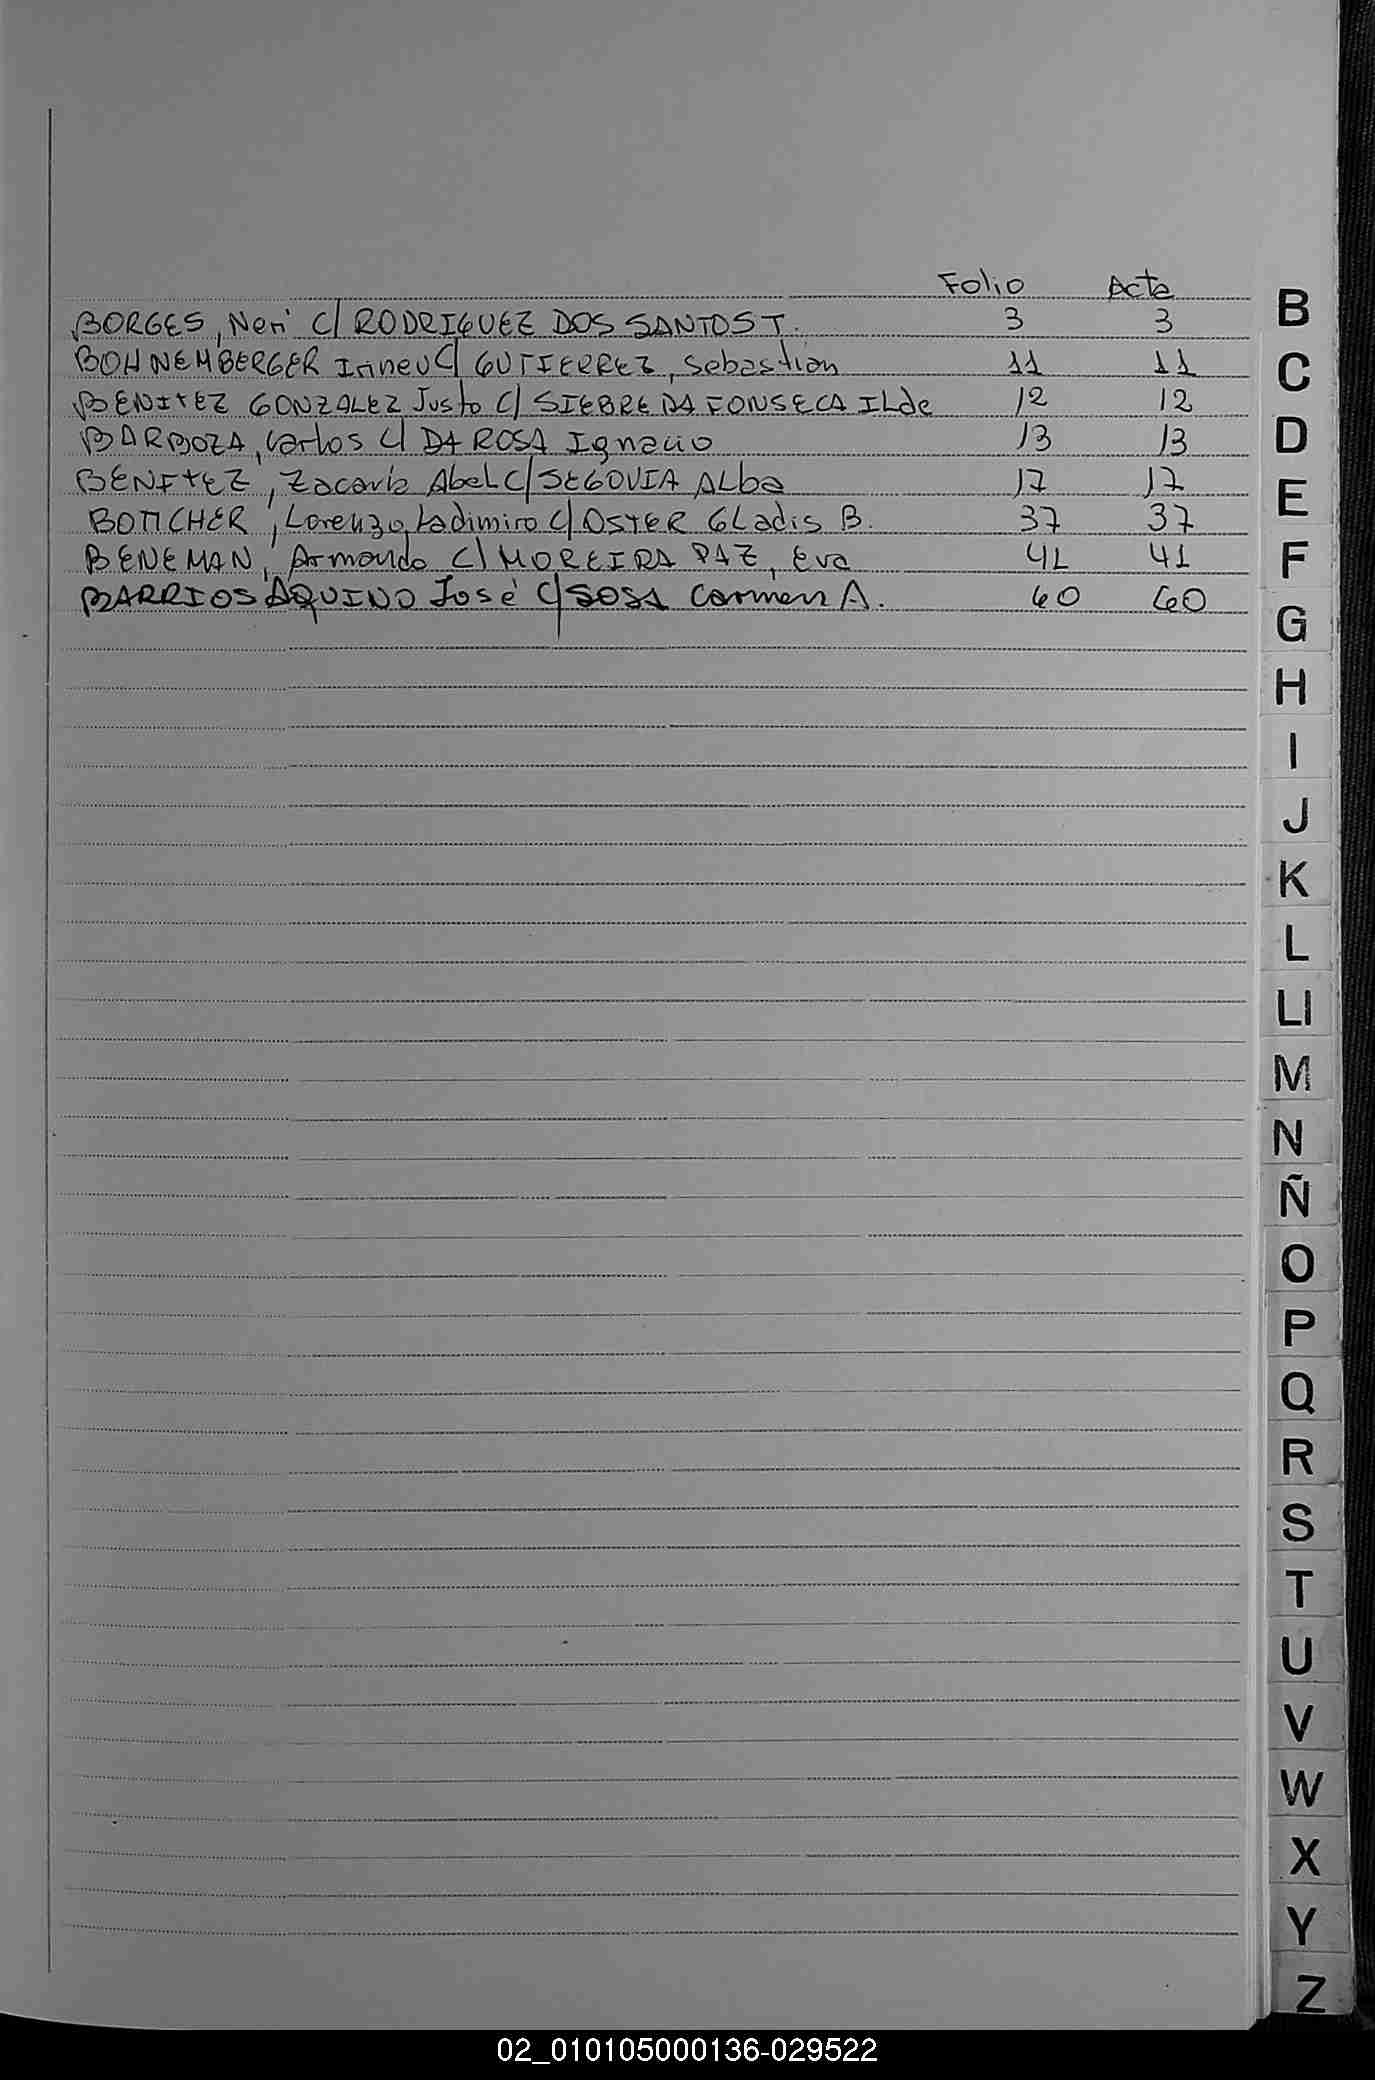 Folio Acta
BORGES, Neri C/ RODRIGUEZ DOS SANTOS T. 3 3
BOHNEMBERGER Irineu C/ GUTIERREZ, Sebastian 11 11
BENITEZ GONZALEZ Justo C/ SIEBRE DA FONSECA ILde 12 12
BARBOZA, Carlos C/ DA ROSA Ignacio 13 13
BENITEZ, Zacaria Abel C/ SEGOVIA ALba 17 17
BOTTCHER, Lorenzo Ladimiro C/ OSTER GLadis B. 37 37
BENEMAN, Armando C/ MOREIRA PAZ, Eva 41 41
BARRIOS AQUINO José C/ SOSA Carmen A. 60 60
B
C
D
E
F
G
H
I
J
K
L
Ll
M
N
Ñ
O
P
Q
R
S
T
U
V
W
X
Y
Z
02_010105000136-029522